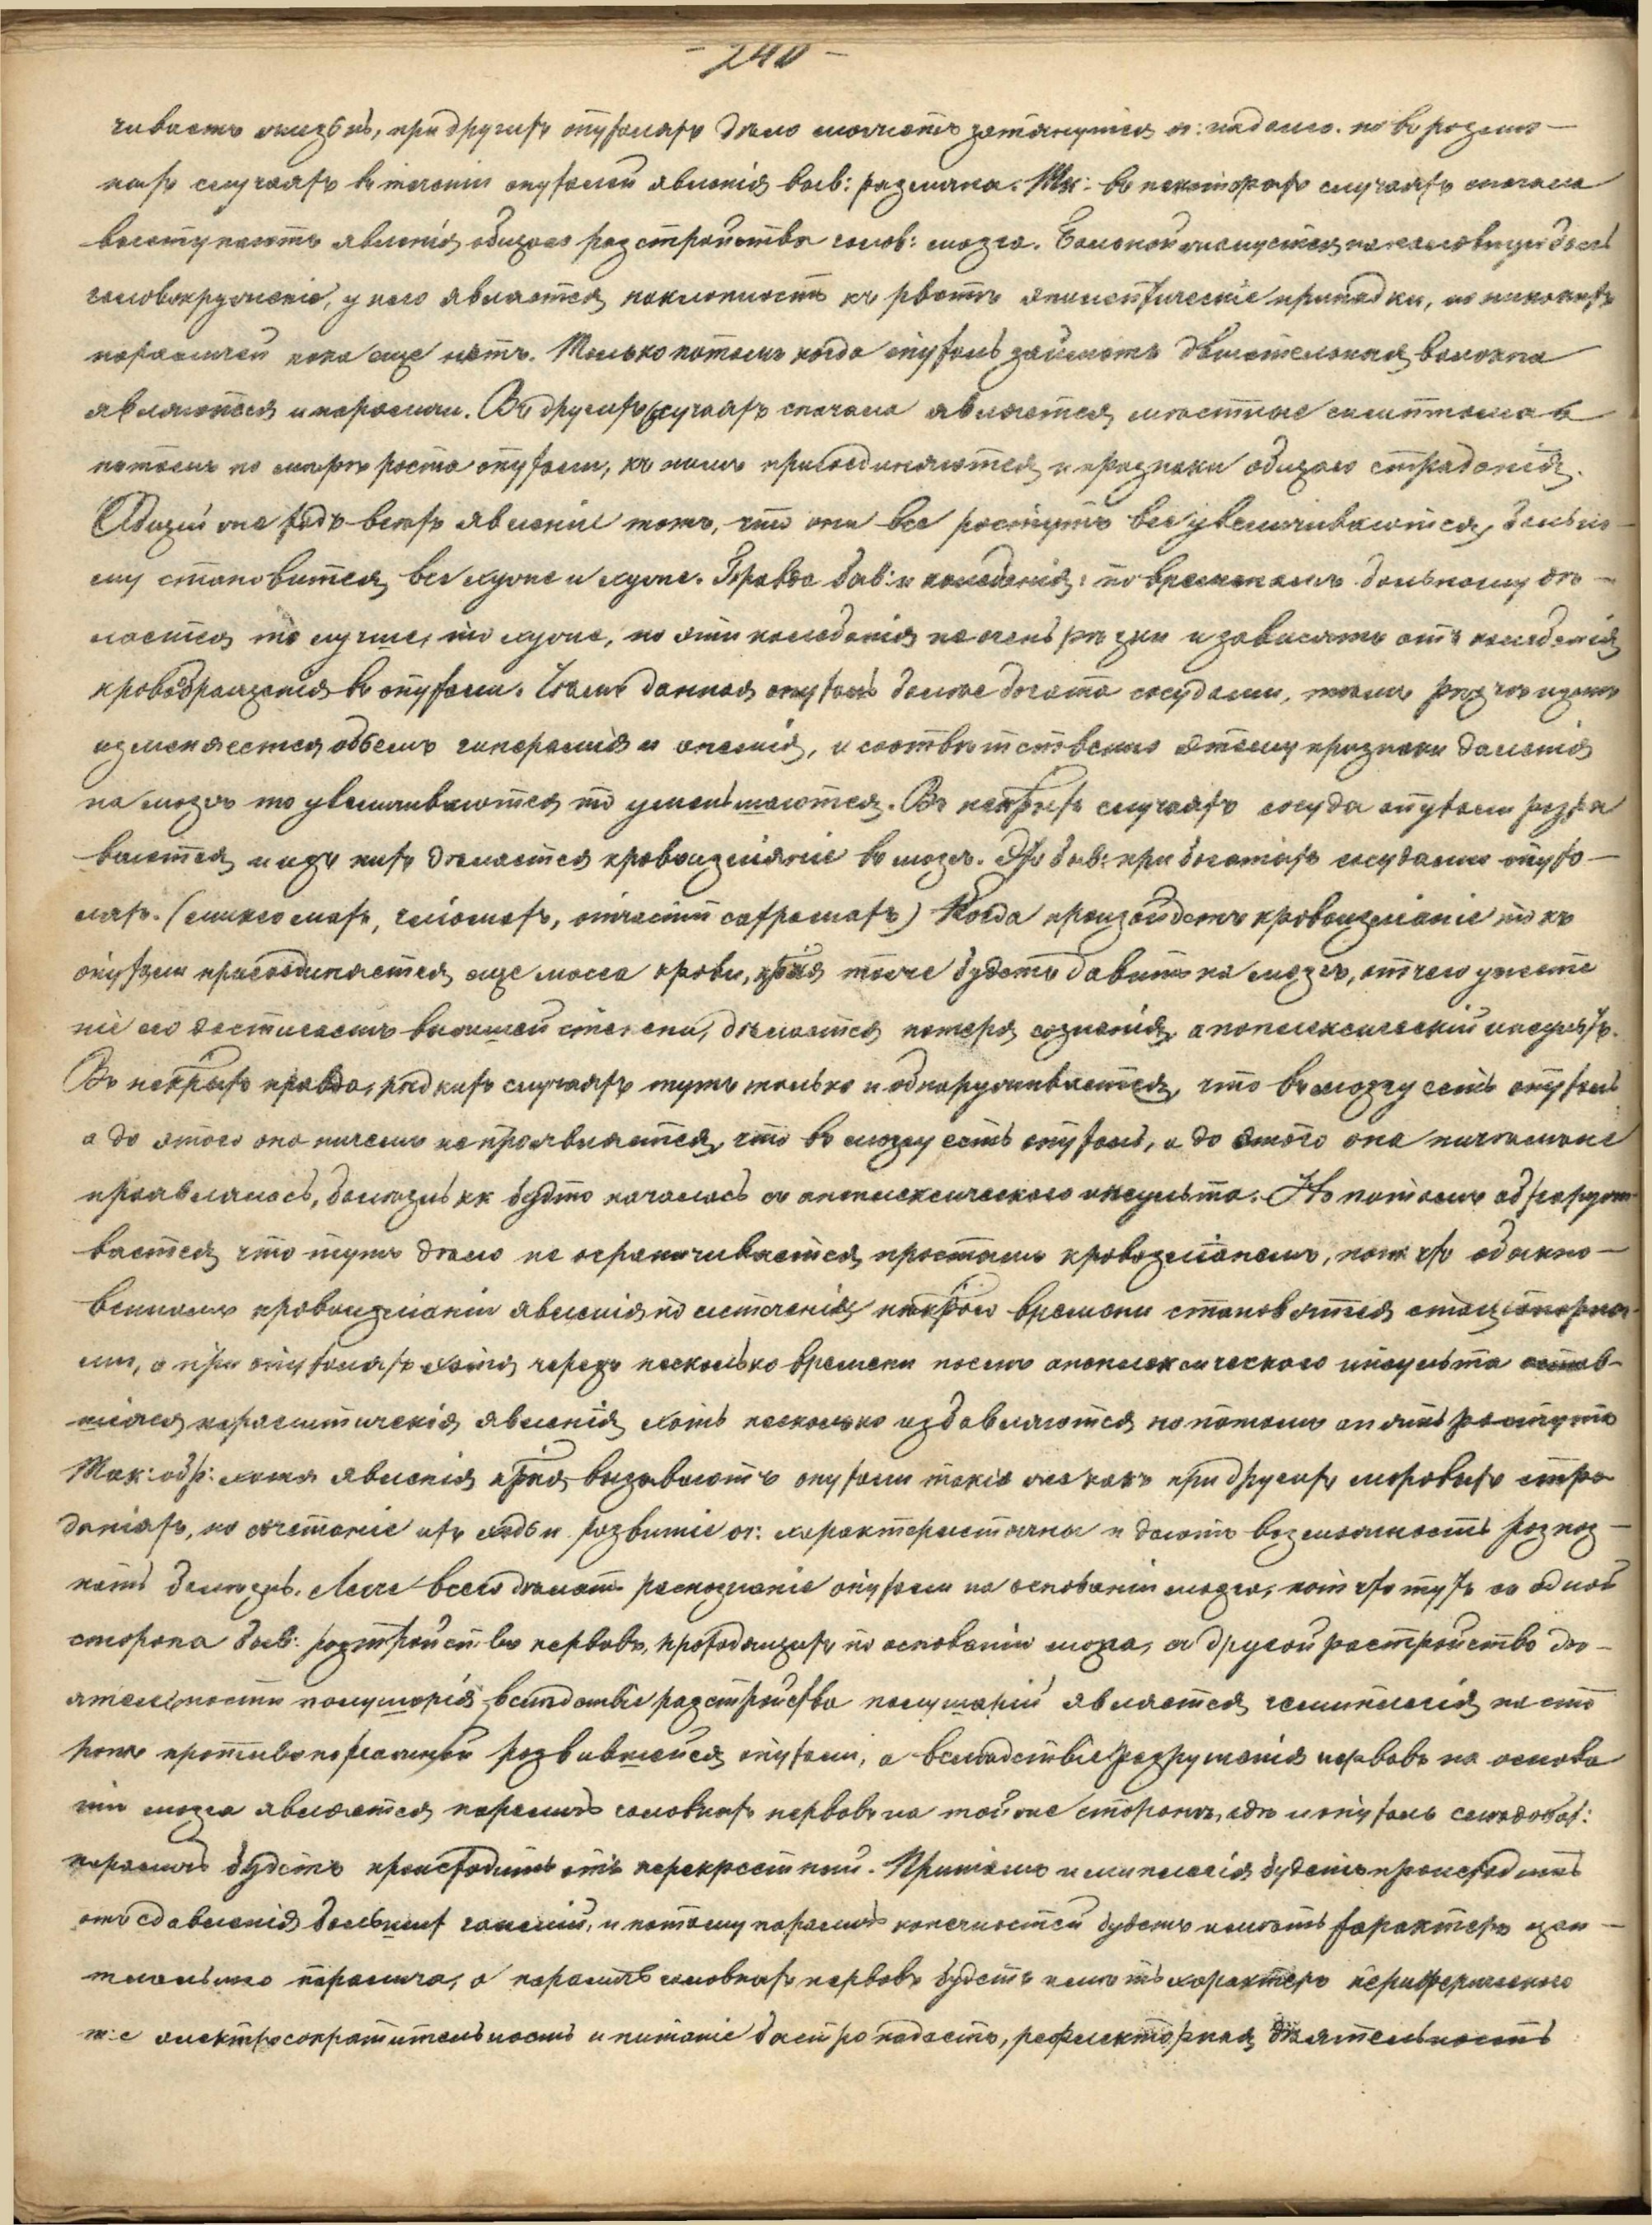 - 240 -
чиваетъ жизнь, при другихъ опухоляхъ дѣло можетъ затянуться оч: надолго. но въ различ-
ныхъ случаяхъ въ теченіи опухолей явленія быв: различны. Тк: въ некоторыхъ случаяхъ сначала
выступаютъ явленія общаго разстройства голов: мозга. Больной жалуется на головную боль
головокруженіе, у него является наклонность къ рвотѣ эпилептическіе припадки, но никакихъ
параличей пока еще нѣтъ. Только потомъ когда опухоль займетъ двигательныя волокна
являются и параличи. Въ другихъ случаяхъ сначала являются мѣстные симптомы а
потомъ по мѣрѣ роста опухоли, къ нимъ присоединяются и признаки общаго страданія.
Общій же ходъ всѣхъ явленій тотъ, что они все растутъ все увеличиваются, больно-
му становится все хуже и хуже. Правда быв: и колебанія: по временамъ больному дѣ-
лается то лучше, то хуже, но эти колебанія не очень рѣзки и зависятъ отъ колебанія
кровобращенія въ опухоли. Чѣмъ данная опухоль болѣе богата сосудами, тѣмъ рѣзче
изменяется объемъ гиперемія и анемія, и соотвѣтственно этому признаки давленія
на мозгъ то увеличиваются то уменьшаются. Въ некрыхъ случаяхъ сосуды опухоли разры
ваются и изъ нихъ дѣлается кровоизліяніе въ мозгъ. Это быв: при богатыхъ сосудами опухо-
ляхъ. (миксомахъ, гліомахъ, отчасти саркомахъ) Когда произойдетъ кровоизліяніе то къ
опухоли присоединяется еще масса крови, края тоже будетъ давить на мозгъ, отчего угнете
ніе его достигаетъ высшей степени, дѣлается потеря сознанія, апоплексическій инсультъ.
Въ некрыхъ правда, рѣдкихъ случаяхъ тутъ только и обнаруживается, что въ мозгу есть опухоль
а до этого она ничемъ не проявляется, что въ мозгу есть опухоль, а до этого она ничѣмъ не
проявлялась, болѣзнь кк будто началась съ апоплексическаго инсульта. Но потомъ обнаружи-
вается что тутъ дѣло не ограничивается простымъ кровоизліянемъ, пот чт обыкно-
венномъ кровоизліяніи явленія по истеченіи нѣкраго времени становятся стаціонарны-
ми, а при опухоляхъ хотя черезъ несколько времени послѣ апоплексическаго инсульта остав-
шіяся паралитическія явленія хоть несколько избавляются но потомъ опять растутъ
Так: обр: хотя явленія крыя вызываютъ опухоли такія же какъ при другихъ мозговыхъ стра
даніяхъ, но сочетаніе ихъ ходъ и развитіе оч: характеристичны и даютъ возможность распоз-
нать болѣзнь. Легче всего дѣлать распознаніе опухоли на основаніи мозга, пот что тутъ съ одной
стороны быв: разтройство нервовъ, проходящихъ по основанію мозга, съ другой растройство дѣ-
ятельности полушарія вслѣдствіе разстройства полушарій является гемиплегія на сто
ронѣ противоположной развившейся опухоли, а вслѣдствіе разрушенія нервовъ на основа
ніи мозга является параличъ головныхъ нервовъ на той же сторонѣ, гдѣ и опухоль следоват:
параличъ будетъ происходить отъ перекрестной. Притомъ гемиплегія будетъ происходить
отъ сдавленія большихъ ганглій, и потому параличъ конечностей будетъ имѣть характеръ цен-
тральнаго паралича, а параличъ головныхъ нервовъ будетъ имѣть характеръ периферическаго
т: е электросократительность и питаніе быстро падаетъ, рефлекторная дѣятельность